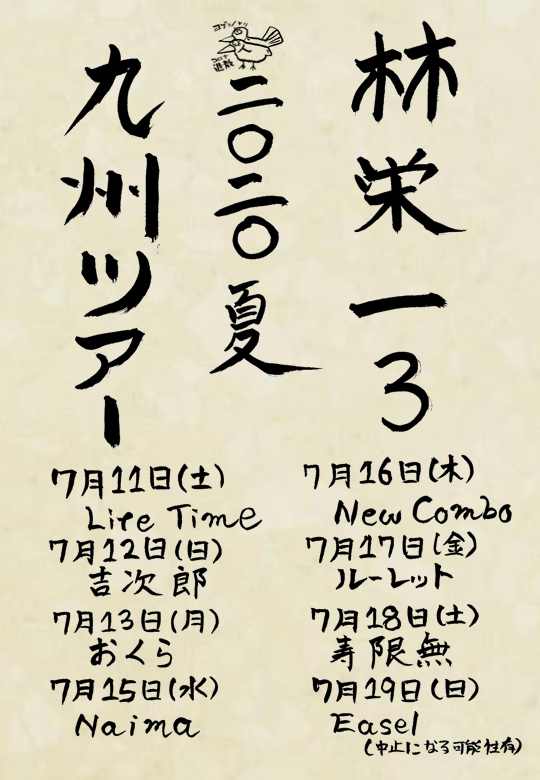 林栄一3
二〇二〇夏
九州ツアー
ヨゲンノトリ
コロナ
退散
7月11日(土)
Life Time
7月12日(日)
吉次郎
7月13日(月)
おくら
7月15日(水)
Naima
7月16日(木)
New Combo
7月17日(金)
ルーレット
7月18日(土)
寿限無
7月19日(日)
Easel
(中止になる可能性有)